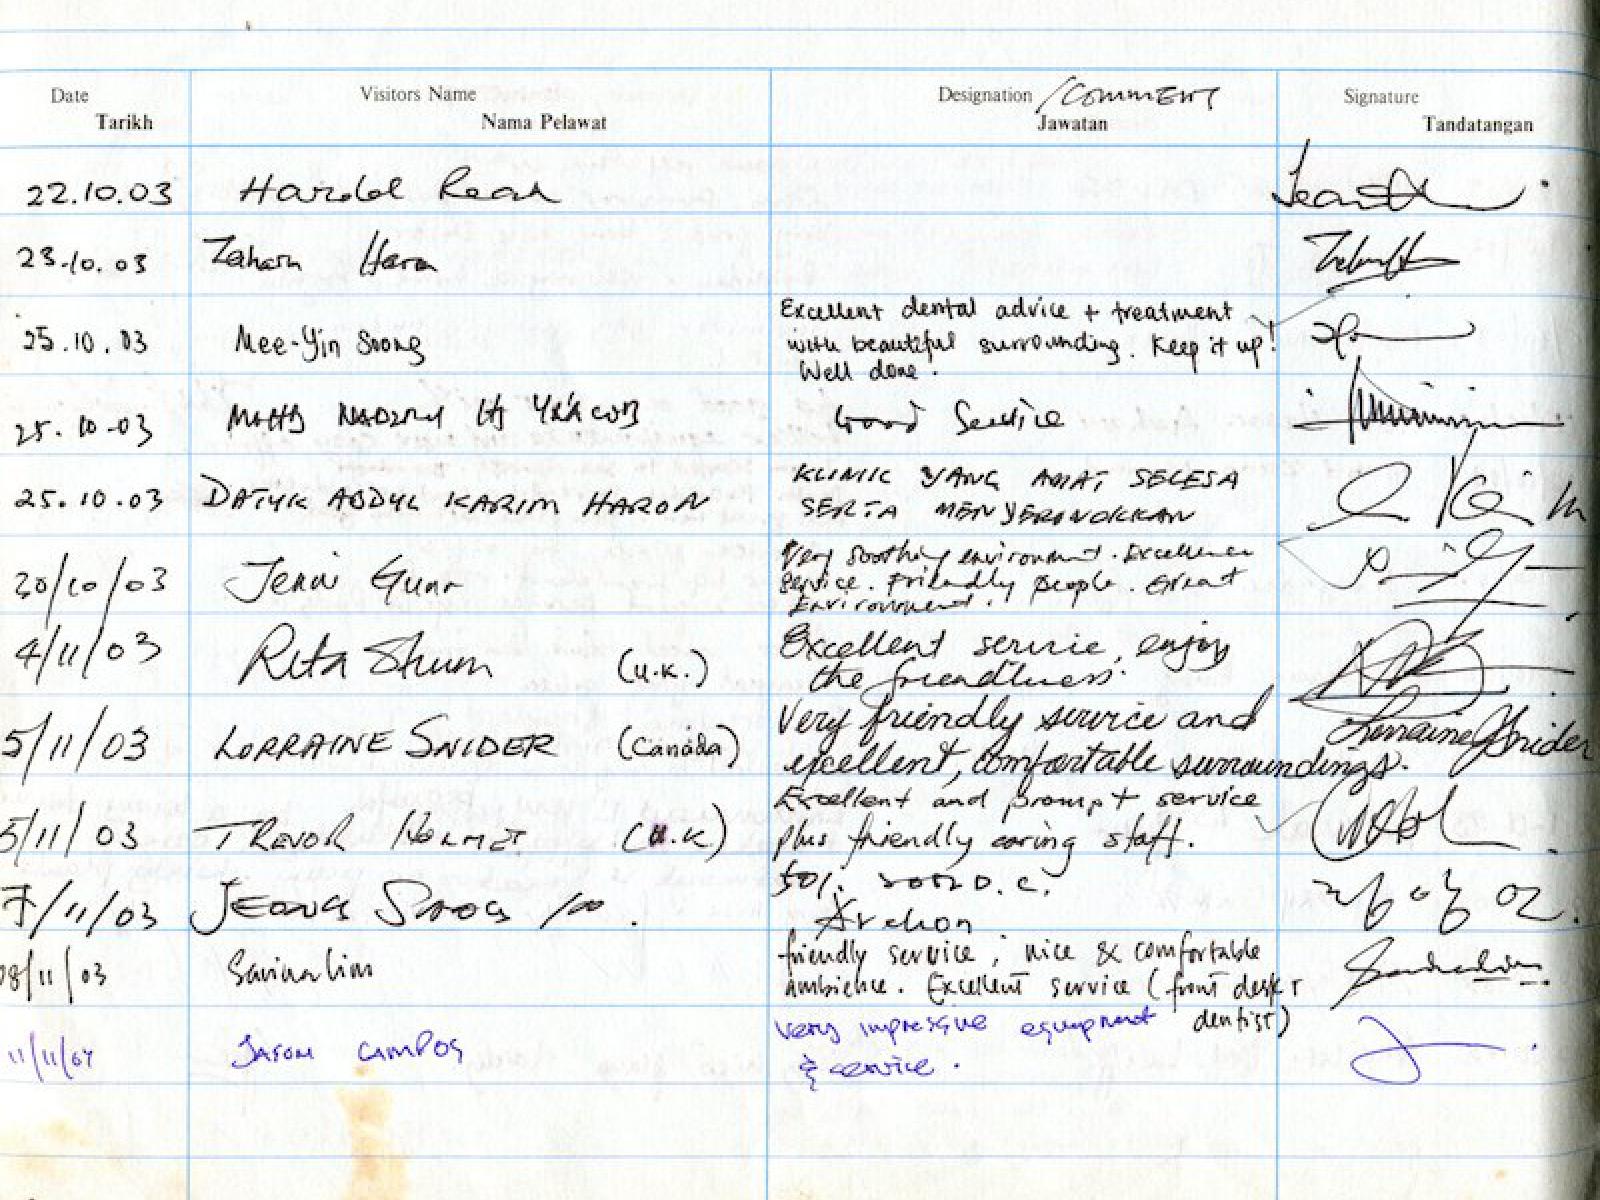 Date Visitors Name Designation /COMMENT Signature
Tarikh Nama Pelawat Jawatan Tandatangan
22.10.03 Harold
23.10.03 Zaharn Harn
25.10.03 Mee-Yin Soong Excellent dental advice + treatment
with beautiful surrounding. Keep it up!
Well done.
25.10.03 Good Service
25.10.03 DATUK ABDUL KARIM HARON KLINIK YANG AMAT SELESA
SERTA MENYERONOKKAN
30/10/03 Very soothing environment. Excellence
Service. Friendly people. Great
Environment.
4/11/03 Rita Shum (U.K.) Excellent service, enjoy
the friendliness.
5/11/03 LORRAINE SNIDER (Canada) Very friendly service and Lorraine Snider
excellent, comfortable surroundings.
5/11/03 TREVOR (U.K) Excellent and prompt service
plus friendly caring staff.
7/11/03
08/11/03 Savina Lim friendly service, nice & comfortable
ambience. Excellent service (front desk +
dentist)
JASON CAMPOS Very impressive equipment
& service.